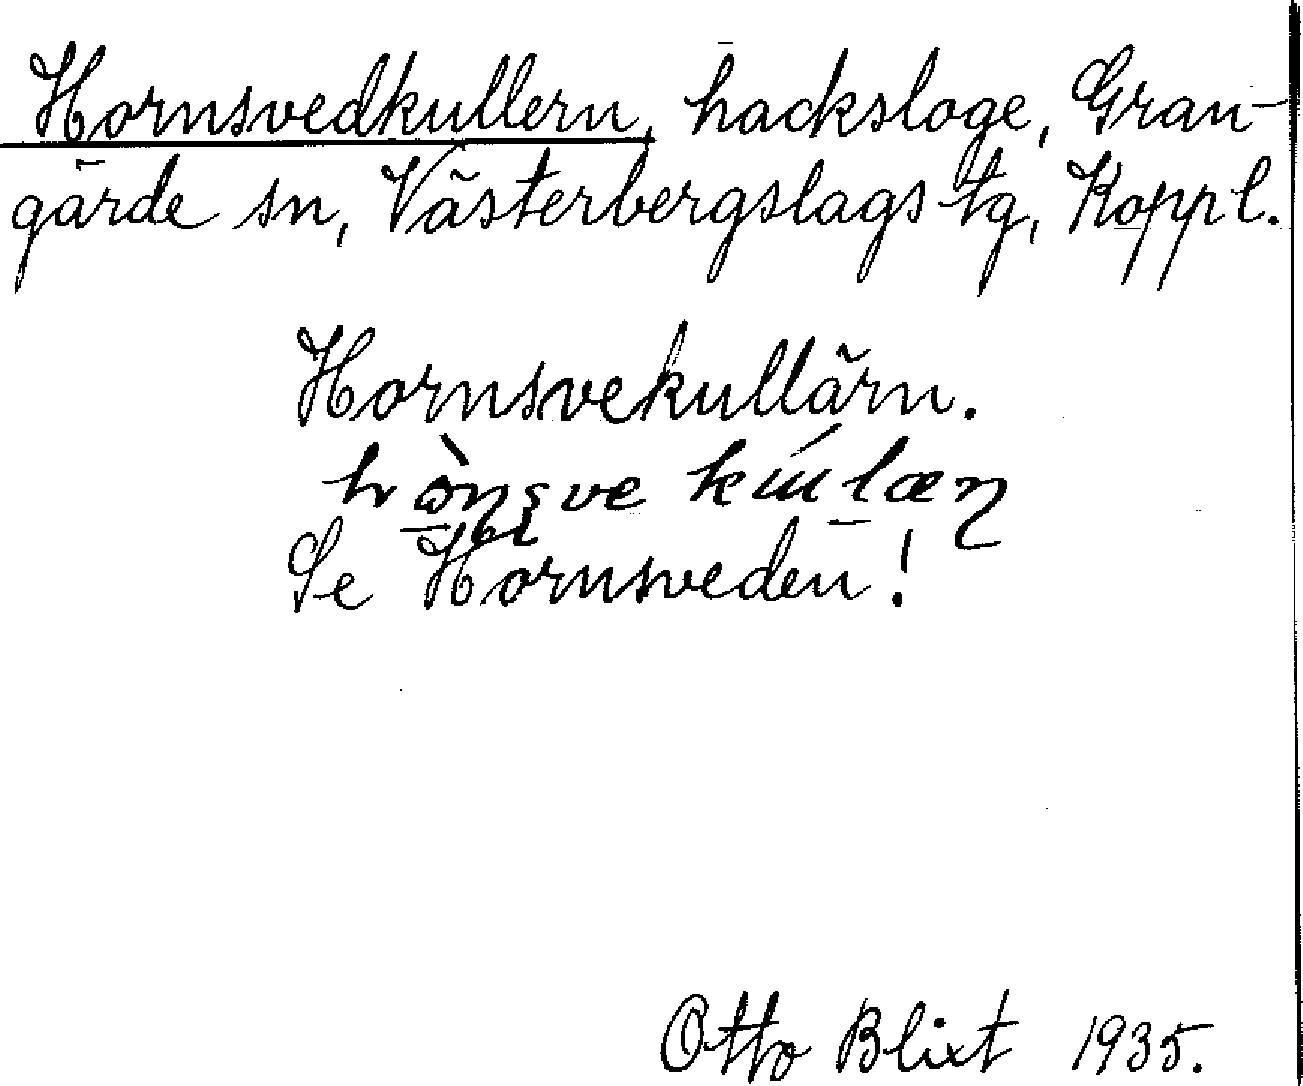 Hornsvedkullern, hacksloge, Gran-
gärde sn, Västerbergslags tg, Koppl.
Hornsvekullärn.
Se Hornsveden!
Otto Blixt 1935.